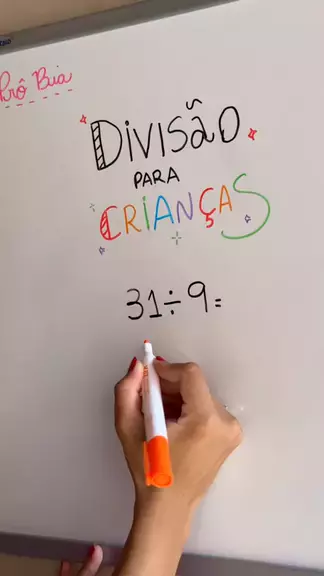 Prô Bia
DIVISÃO
PARA
CRIANÇAS
31÷9=